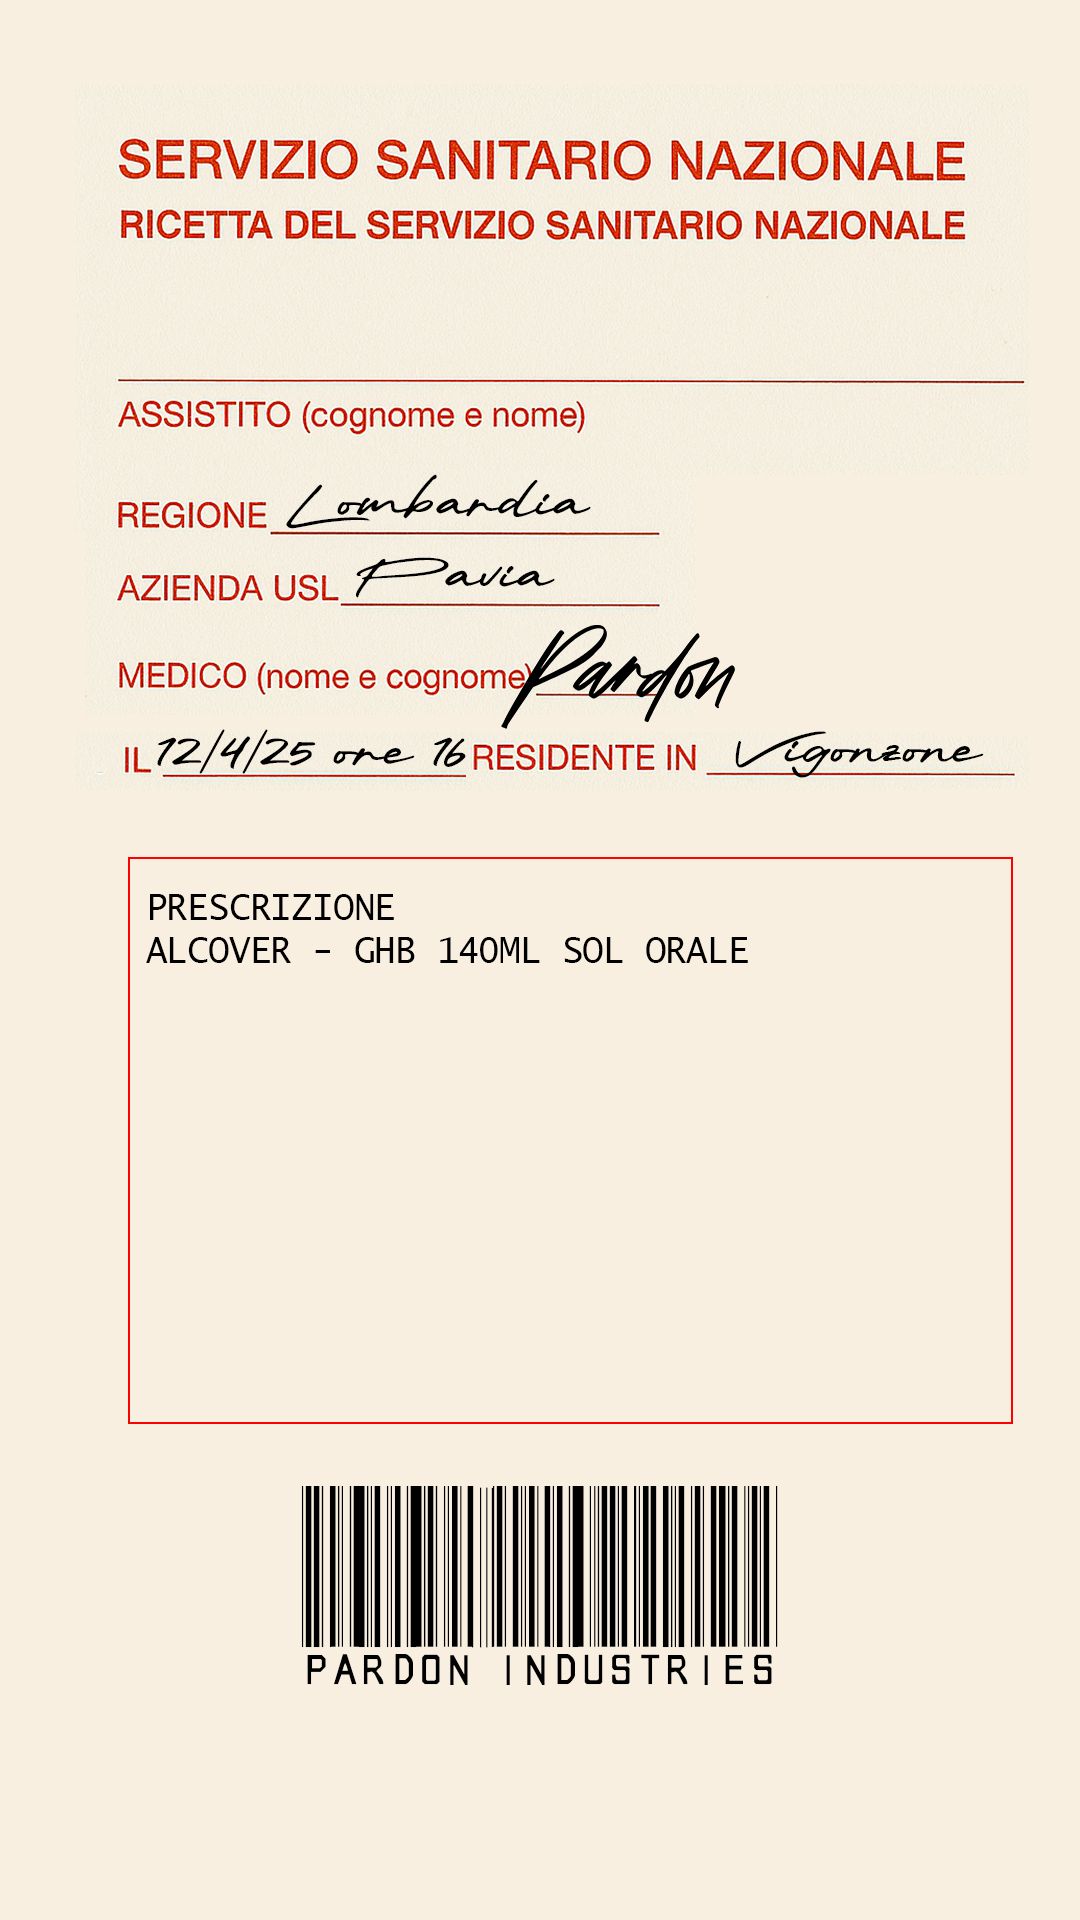 SERVIZIO SANITARIO NAZIONALE
RICETTA DEL SERVIZIO SANITARIO NAZIONALE
ASSISTITO (cognome e nome)
REGIONE Lombardia
AZIENDA USL Pavia
MEDICO (nome e cognome) Pardon
IL 12/4/25 ore 16 RESIDENTE IN Vigonzone
PRESCRIZIONE
ALCOVER - GHB 140ML SOL ORALE
PARDON INDUSTRIES